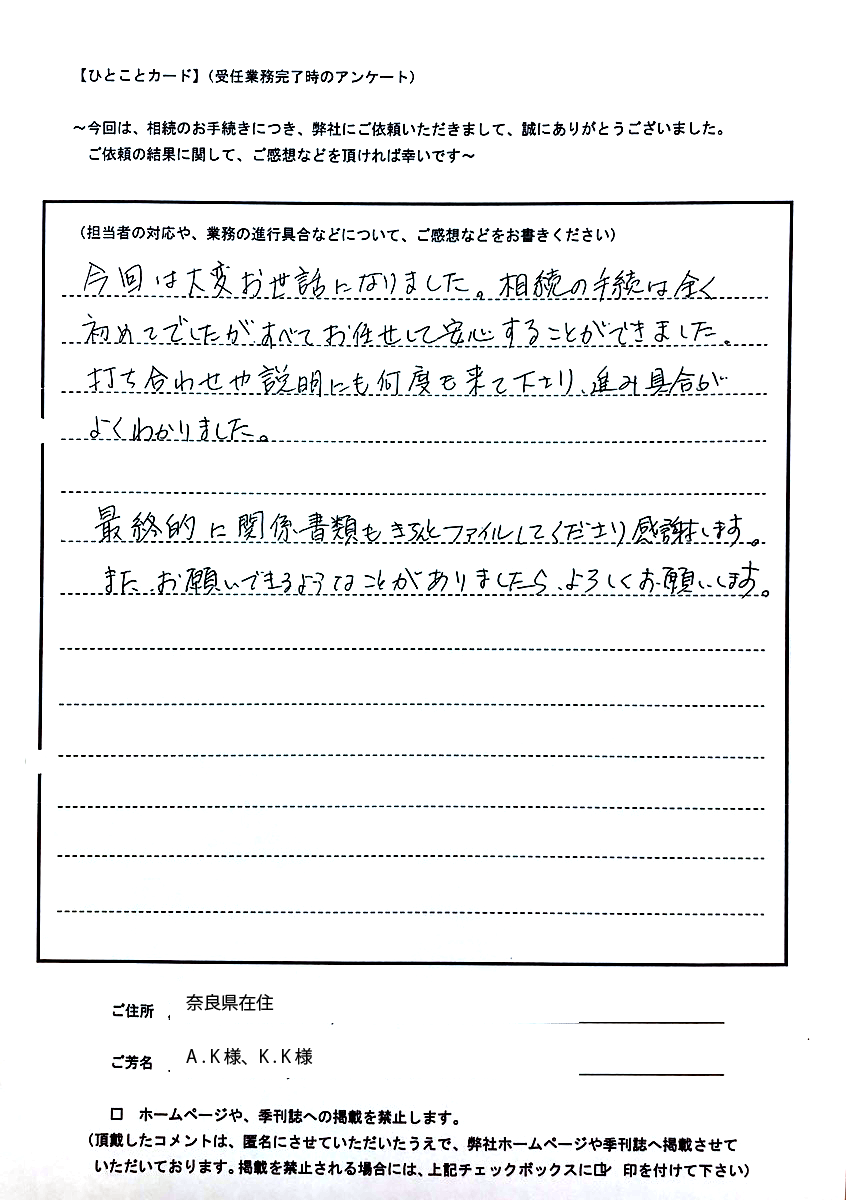 【ひとことカード】（受任業務完了時のアンケート）
～今回は、相続のお手続きにつき、弊社にご依頼いただきまして、誠にありがとうございました。
ご依頼の結果に関して、ご感想などを頂ければ幸いです～
（担当者の対応や、業務の進行具合などについて、ご感想などをお書きください）
今回は大変お世話になりました。相続の手続は全く
初めてでしたがすべてお任せして安心することができました。
打ち合わせや説明にも何度も来て下さり、進み具合が
よくわかりました。
最終的に関係書類もきちんとファイルしてくださり感謝します。
また、お願いできるようなことがありましたら、よろしくお願いします。
ご住所 奈良県在住
ご芳名 A.K様、K.K様
□ ホームページや、季刊誌への掲載を禁止します。
（頂戴したコメントは、匿名にさせていただいたうえで、弊社ホームページや季刊誌へ掲載させて
いただいております。掲載を禁止される場合には、上記チェックボックスに☑ 印を付けて下さい）